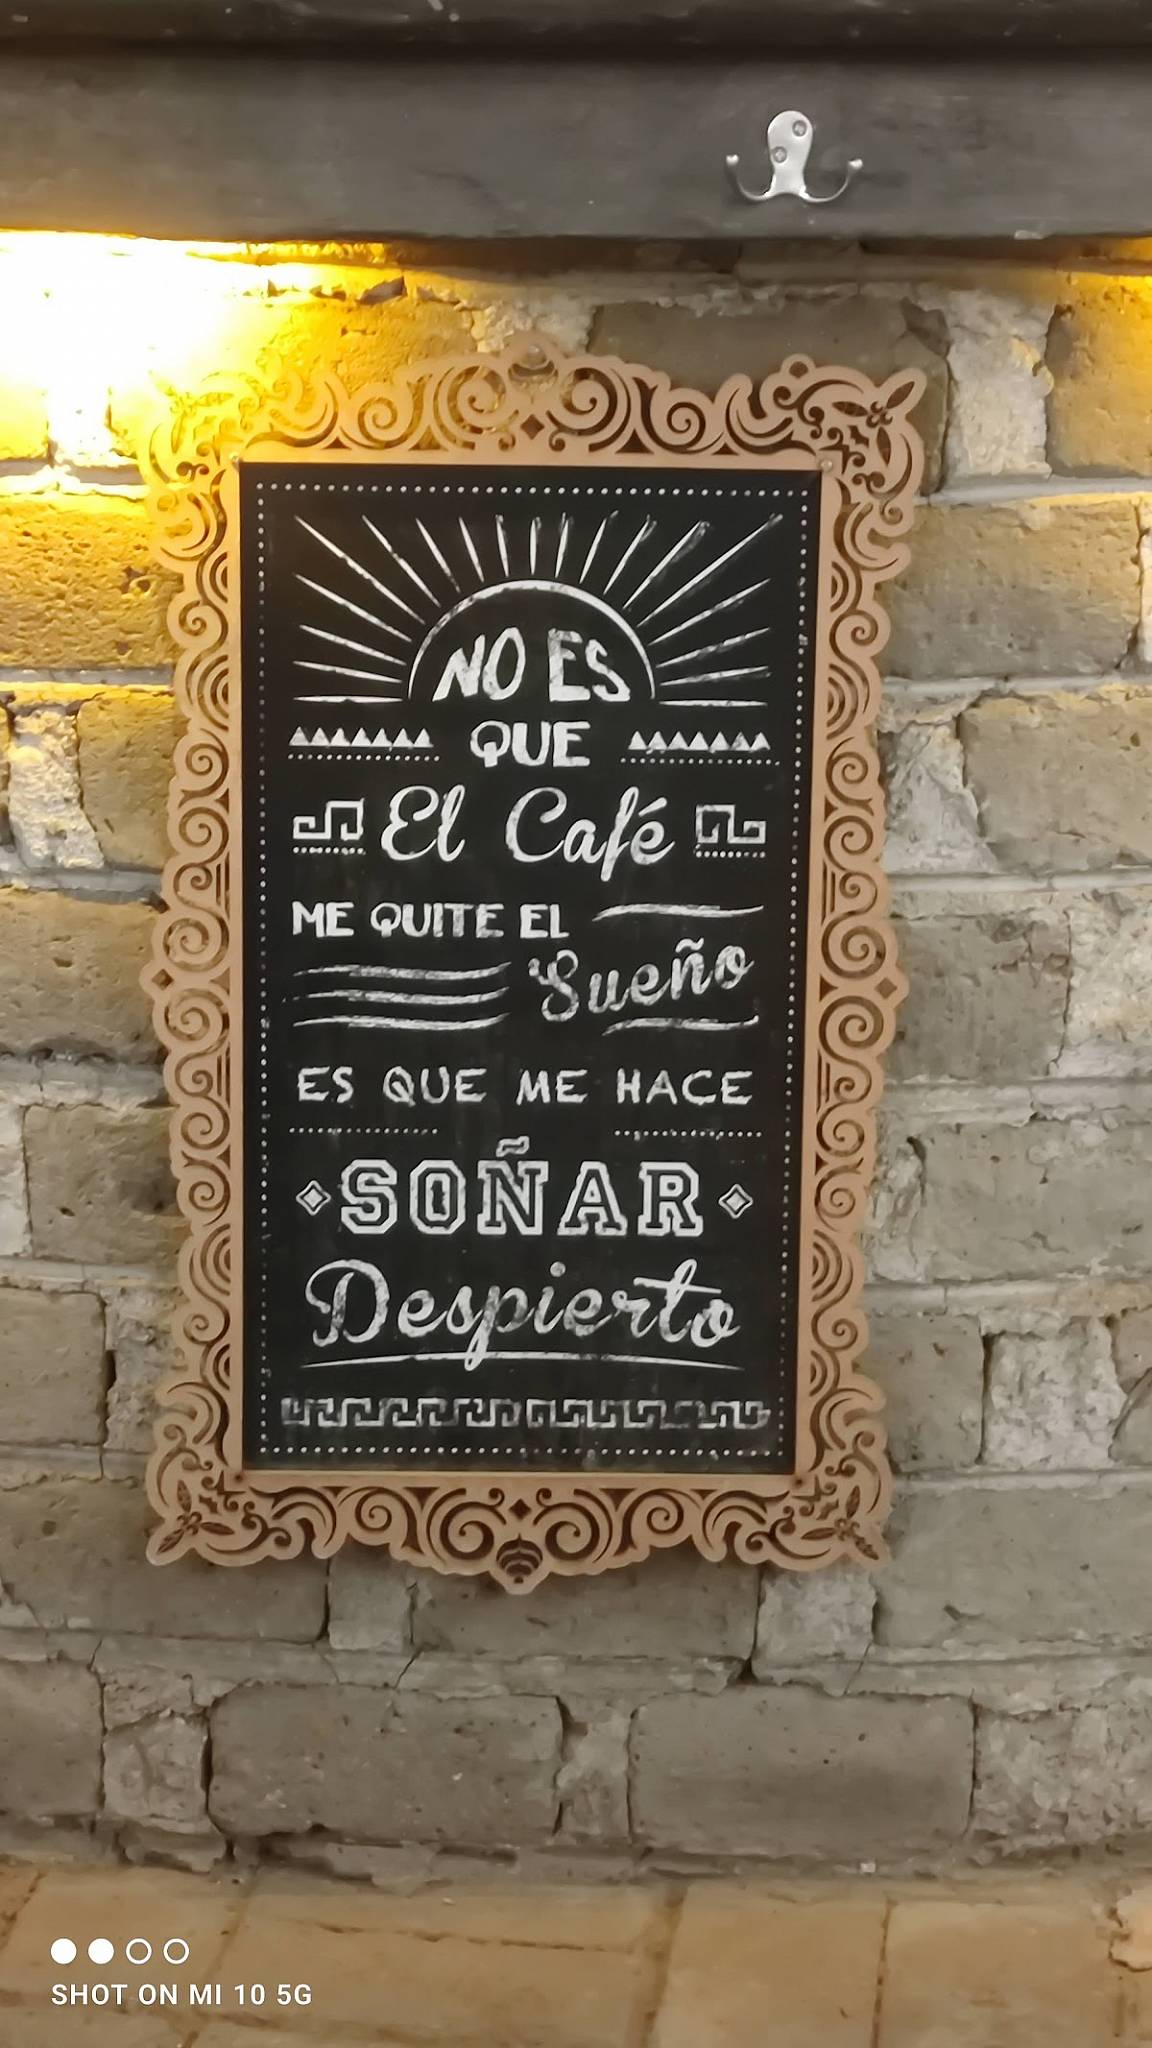 NO ES
QUE
El Café
ME QUITE EL
Sueño
ES QUE ME HACE
SOÑAR
Despierto
SHOT ON MI 10 5G